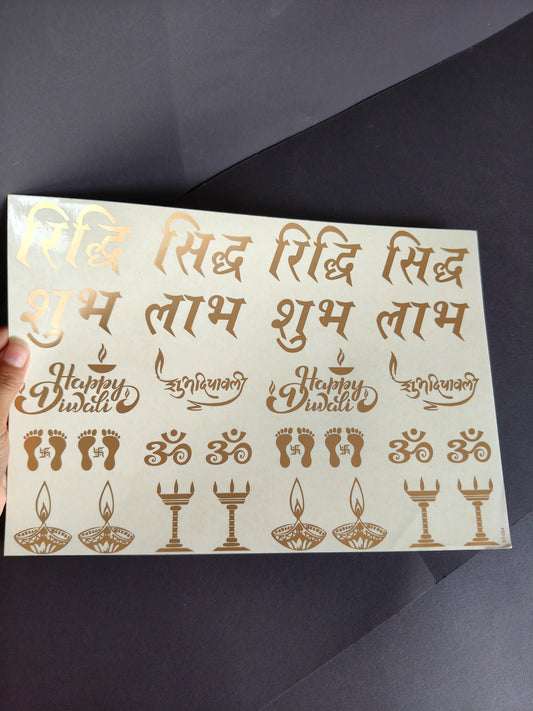 रिद्धि सिद्ध रिद्धि सिद्ध
शुभ लाभ शुभ लाभ
Happy Diwali शुभ दिपावली Happy Diwali शुभ दिपावली
ॐ ॐ ॐ ॐ